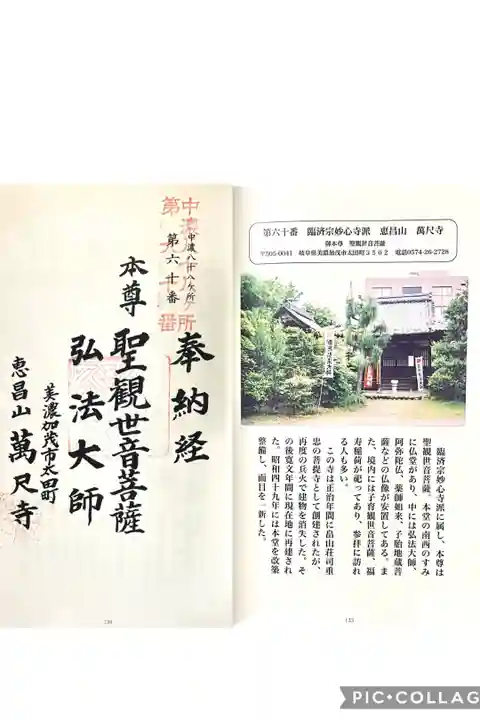 第六十番　臨済宗妙心寺派　恵昌山　萬尺寺
御本尊　聖観世音菩薩
〒505-0041　岐阜県美濃加茂市太田町３５０２　電話0574-26-2728
臨済宗妙心寺派に属し、本尊は
聖観世音菩薩。本堂の南西のすみ
に仏堂があり、中には弘法大師、
阿弥陀仏、薬師如来、子胎地蔵菩
薩などの仏像が安置してある。ま
た、境内には子育観世音菩薩、福
寿稲荷が祀ってあり、参拝に訪れ
る人も多い。
この寺は正治年間に畠山荘司重
忠の菩提寺として創建されたが、
再度の兵火で建物を消失した。そ
の後寛文年間に現在地に再建され
た。昭和四十九年には本堂を改築
整備し、面目を一新した。
133
奉納経
中濃八十八ヶ所
第六十番
本尊 聖觀世音菩薩
弘法大師
美濃加茂市太田町
恵昌山 萬尺寺
PIC•COLLAGE